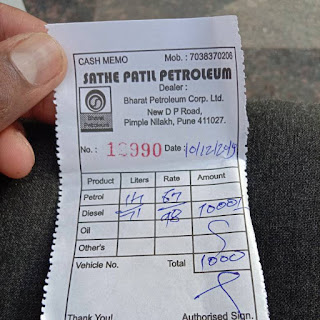 CASH MEMO Mob.: 7038370206
SATHE PATIL PETROLEUM
Dealer :
Bharat Petroleum Corp. Ltd.
New D P Road,
Pimple Nilakh, Pune 411027.
Bharat
Petroleum
No. : 18990 Date : 10/12/2019
Product Liters Rate Amount
Petrol
Diesel 1000/
Oil
Other's
Vehicle No. Total 1000
Thank You! Authorised Sign.